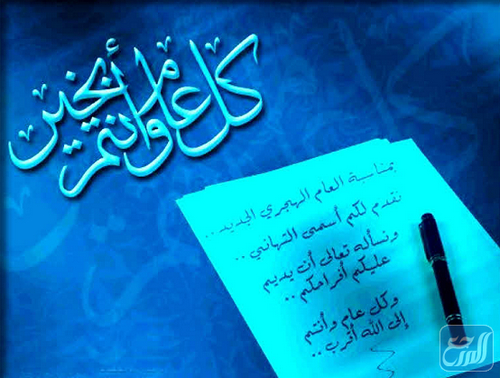 كل عام وأنتم بخير
بمناسبة العام الهجري الجديد ..
نقدم لكم أسمى التهاني ..
ونسأله تعالى أن يديم
عليكم أفراحكم ..
وكل عام وأنتم
إلى الله أقرب ..
المرجع